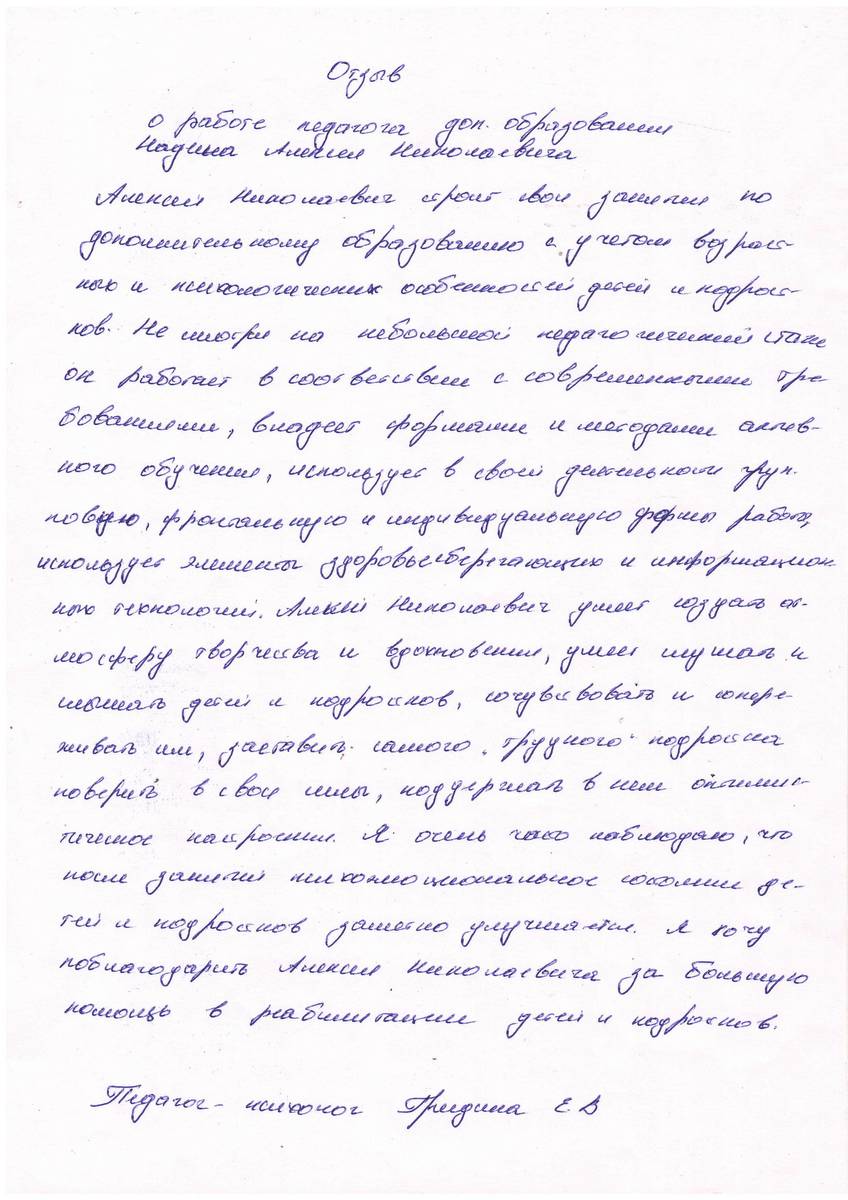 Отзыв
о работе педагога доп. образования
Надина Алексея Николаевича
Алексей Николаевич строит свои занятия по
дополнительному образованию с учетом возраст-
ных и психологических особенностей детей и подрост-
ков. Не смотря на небольшой педагогический стаж
он работает в соответствии с современными тре-
бованиями, владеет формами и методами актив-
ного обучения, использует в своей деятельности груп-
повую, фронтальную и индивидуальную формы работы,
использует элементы здоровьесберегающих и информацион-
ных технологий. Алексей Николаевич умеет создать ат-
мосферу творчества и вдохновения, умеет слушать и
слышать детей и подростков, сочувствовать и сопере-
живать им, заставить самого "трудного" подростка
поверить в свои силы, поддержать в нем оптимис-
тическое настроение. Я очень часто наблюдаю, что
после занятий психоэмоциональное состояние де-
тей и подростков заметно улучшается. Я хочу
поблагодарить Алексея Николаевича за большую
помощь в реабилитации детей и подростков.
Педагог-психолог Е В